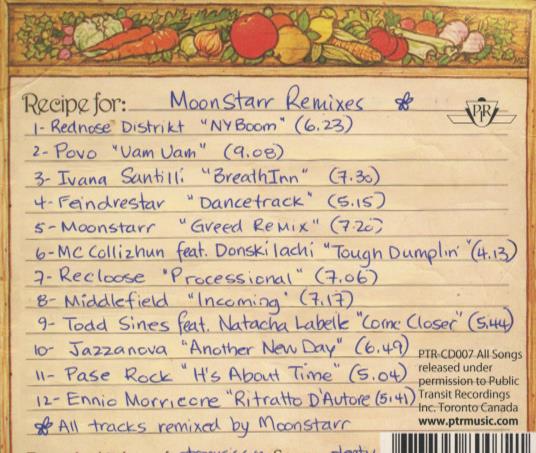 Recipe for: MoonStarr Remixes
PTR
1- Rednose Distrikt "NYBoom" (6.23)
2- Povo "Uam Uam" (9.08)
3- Ivana Santilli "BreathInn" (7.30)
4- Feindrestar "Dancetrack" (5.15)
5- Moonstarr "Greed ReMix" (7.20)
6- MC Collizhun feat. Donski lachi "Tough Dumplin'" (4.13)
7- Recloose "Processional" (7.06)
8- Middlefield "Incoming" (7.17)
9- Todd Sines feat. Natacha Labelle "Come Closer" (5.44)
10- Jazzanova "Another New Day" (6.49)
11- Pase Rock "It's About Time" (5.04)
12- Ennio Morricone "Ritratto D'Autore (5:41)
All tracks remixed by Moonstarr
PTR-CD007 All Songs
released under
permission to Public
Transit Recordings
Inc. Toronto Canada
www.ptrmusic.com